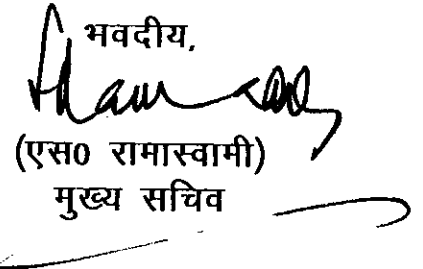 भवदीय,
(एस0 रामास्वामी)
मुख्य सचिव